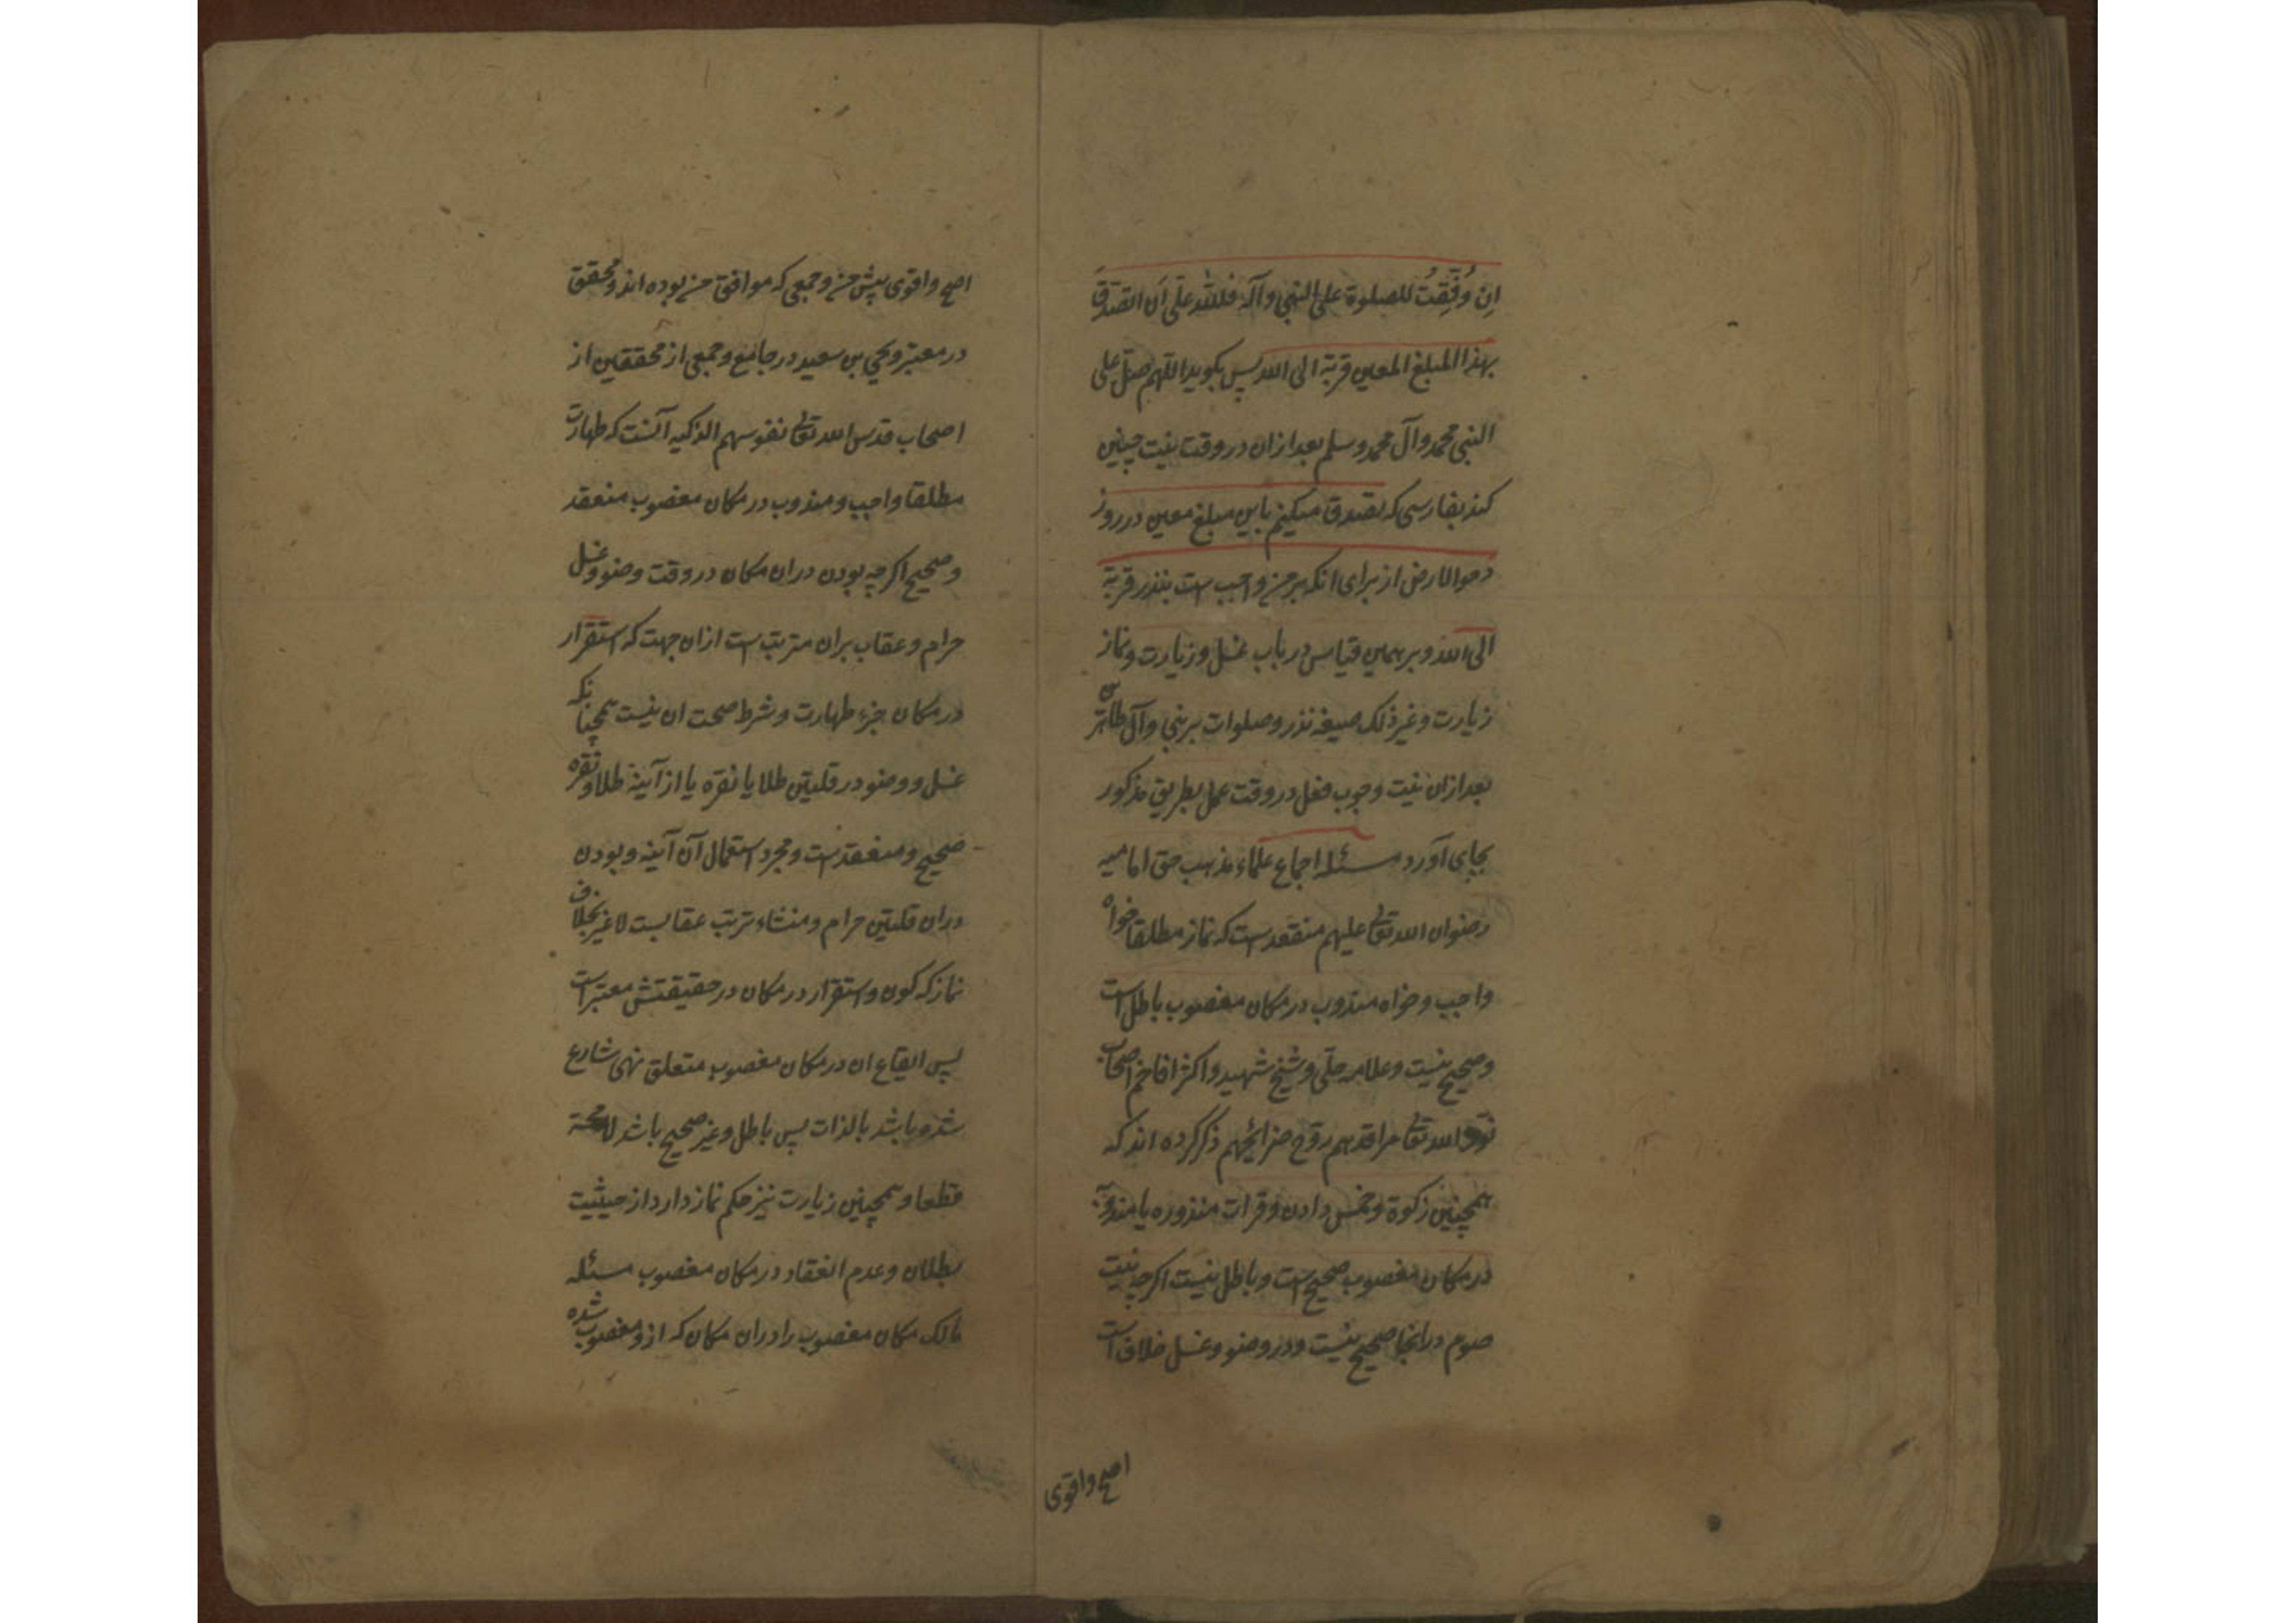 اِن وُفِّقتُ للصلوة علی النبی وآله فللّه علَیّ اَن اتصَدّقَ
بهذا المبلغ المعین قربة الی الله پس بکوید اللّهم صلّ علی
النبی محمد وآل محمد وسلم بعد ازان در وقت نیت چنین
کند بفارسی که تصدق میکنم باین مبلغ معین در روز
دحوالارض از برای انکه بر من واجب است بنذر قربة
الی الله وبر همین قیاس در باب غسل وزیارت ونماز
زیارت وغیر ذلک صیغه نذر وصلوات بر نبی وآل طاهرین
بعد ازان نیت وجوب فعل در وقت عمل بطریق مذکور
بجای آورد مسئله اجماع علماء مذهب حق امامیه
رضوان الله تعالی علیهم منعقد است که نماز مطلقا خواه
واجب وخواه مندوب در مکان مغصوب باطل است
وصحیح نیست وعلامه حلّی وشیخ شهید واکثر افاخم اصحاب
نوّر الله تعالی مراقدهم روّح ضرائحهم ذکر کرده اند که
همچنین زکوة وخمس دادن وقرات منذوره یا مندوبه
در مکان مغصوب صحیح است وباطل نیست اکرچه نیت
صوم درانجا صحیح نیست ودر وضو وغسل خلاف است
اصح واقوی
اصح واقوی پیش من وجمعی که موافق من بوده اند ومحقق
در معتبر ویحیی بن سعید در جامع وجمعی از محققین از
اصحاب قدس الله تعالی نفوسهم الزکیه آنست که طهارت
مطلقا واجب ومندوب در مکان مغصوب منعقد
وصحیح اکرچه بودن دران مکان در وقت وضو وغسل
حرام وعقاب بران مترتب است ازان جهت که استقرار
در مکان جزء طهارت وشرط صحت ان نیست همچنانکه
غسل ووضو در قلتین طلا یا نقره یا از آنیهٔ طلا ونقره
صحیح ومنعقد است ومجرد استعمال آن آنیه وبودن
دران قلتین حرام ومنشاء ترتب عقابست لاغیر بخلاف
نماز که کون واستقرار در مکان در حقیقتش معتبر است
پس ایقاع ان در مکان مغصوب متعلق نهی شارع
شده باشد بالذات پس باطل وغیر صحیح باشد لامحة
قطعا وهمچنین زیارت نیز حکم نماز دارد از حیثیت
بطلان وعدم انعقاد در مکان مغصوب مسئله
مالک مکان مغصوب را دران مکان که ازو مغصوب شده